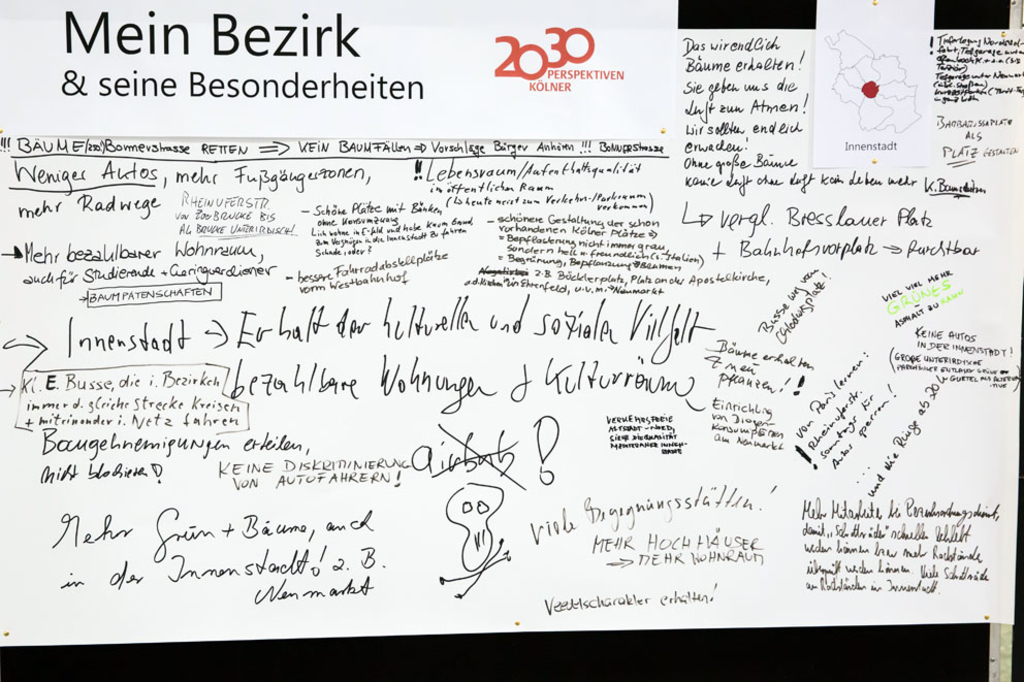 Mein Bezirk
& seine Besonderheiten
2030
PERSPEKTIVEN
KÖLNER
Das wir endlich
Bäume erhalten!
Sie geben uns die
Luft zum Atmen!
Wir sollten endlich
erwachen!
Ohne große Bäume
keine Luft ohne Luft kein Leben mehr
Innenstadt
BARBAROSSAPLATZ
ALS
PLATZ GESTALTEN
!!! BÄUME Bonnerstrasse RETTEN => KEIN BAUMFÄLLEN => Vorschläge Bürger Anhören !!! BONNERSTRASSE
Weniger Autos, mehr Fußgängerzonen,
mehr Radwege
RHEINUFERSTR.
VON ZOOBRÜCKE BIS
ALS BRÜCKE UNTERIRDISCH!
!! Lebensraum/Aufenthaltsqualität
im öffentlichen Raum
(↳ heute meist zum Verkehrs-/Parkraum
verkommen)
- Schöne Plätze mit Bänken
ohne Konsumzwang
Ich wohne in E-feld und habe kaum Grund
zum Vergnügen in die Innenstadt zu fahren
Schade, oder?
- bessere Fahrradabstellplätze
vorm Westbahnhof
- schönere Gestaltung der schon
vorhandenen Kölner Plätze =>
= Bepflasterung nicht immer grau,
sondern hell + freundlich (s. Italien)
= Begrünung, Bepflanzung → Bäumen
z.B. Böcklerplatz, Platz an der Apostelkirche,
in Ehrenfeld, u.v.m. → Neumarkt
↳ vergl. Breslauer Platz
+ Bahnhofsvorplatz → furchtbar
→ Mehr bezahlbarer Wohnraum,
auch für Studierende + Geringverdiener
→ BAUMPATENSCHAFTEN
Innenstadt → Erhalt der kulturellen und sozialen Vielfalt
bezahlbare Wohnungen + Kulturräume
→ Kl. E. Busse, die i. Bezirken
immer d. gleiche Strecke kreisen
+ miteinander i. Netz fahren
Busse weg vom
VIEL VIEL MEHR
GRÜNES
ASPHALT ZU
KEINE AUTOS
IN DER INNENSTADT!
Bäume erhalten
+ neu
pflanzen!!
Einrichtung
von Drogen-
konsumräumen
am Neumarkt
VERKEHRSFREIE
ALTSTADT-NORD,
! von Paris lernen:
Rheinuferstr.
sonntags für
Autos sperren!
... und die Ringe ab 20
Baugenehmigungen erteilen,
nicht blockieren!
KEINE DISKRIMINIERUNG
VON AUTOFAHRERN!
airbnb !
Mehr Grün + Bäume, auch
in der Innenstadt! z.B.
Neumarkt
viele Begegnungsstätten!
MEHR HOCHHÄUSER
→ MEHR WOHNRAUM
Veedelscharakter erhalten!
Mehr Mitarbeiter bei
damit „Schrotträder" schneller
werden können bzw mehr Radstände
überprüft werden können. Viele Schrotträder
an Radständen in Innenstadt.